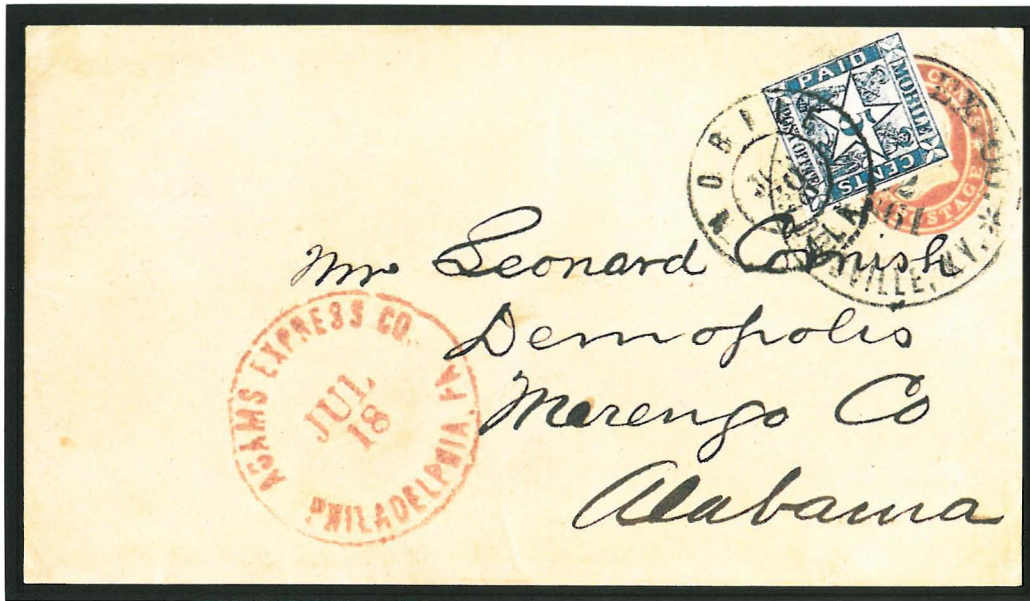 PAID
MOBILE
POST OFFICE
5
CENTS
MOBILE
ALA
EX. CO.
1861
SVILLE, KY.
STAGE
Mr Leonard Cornish
Demopolis
Marengo Co
Alabama
ADAMS EXPRESS CO.
JUL
18
PHILADELPHIA, PA